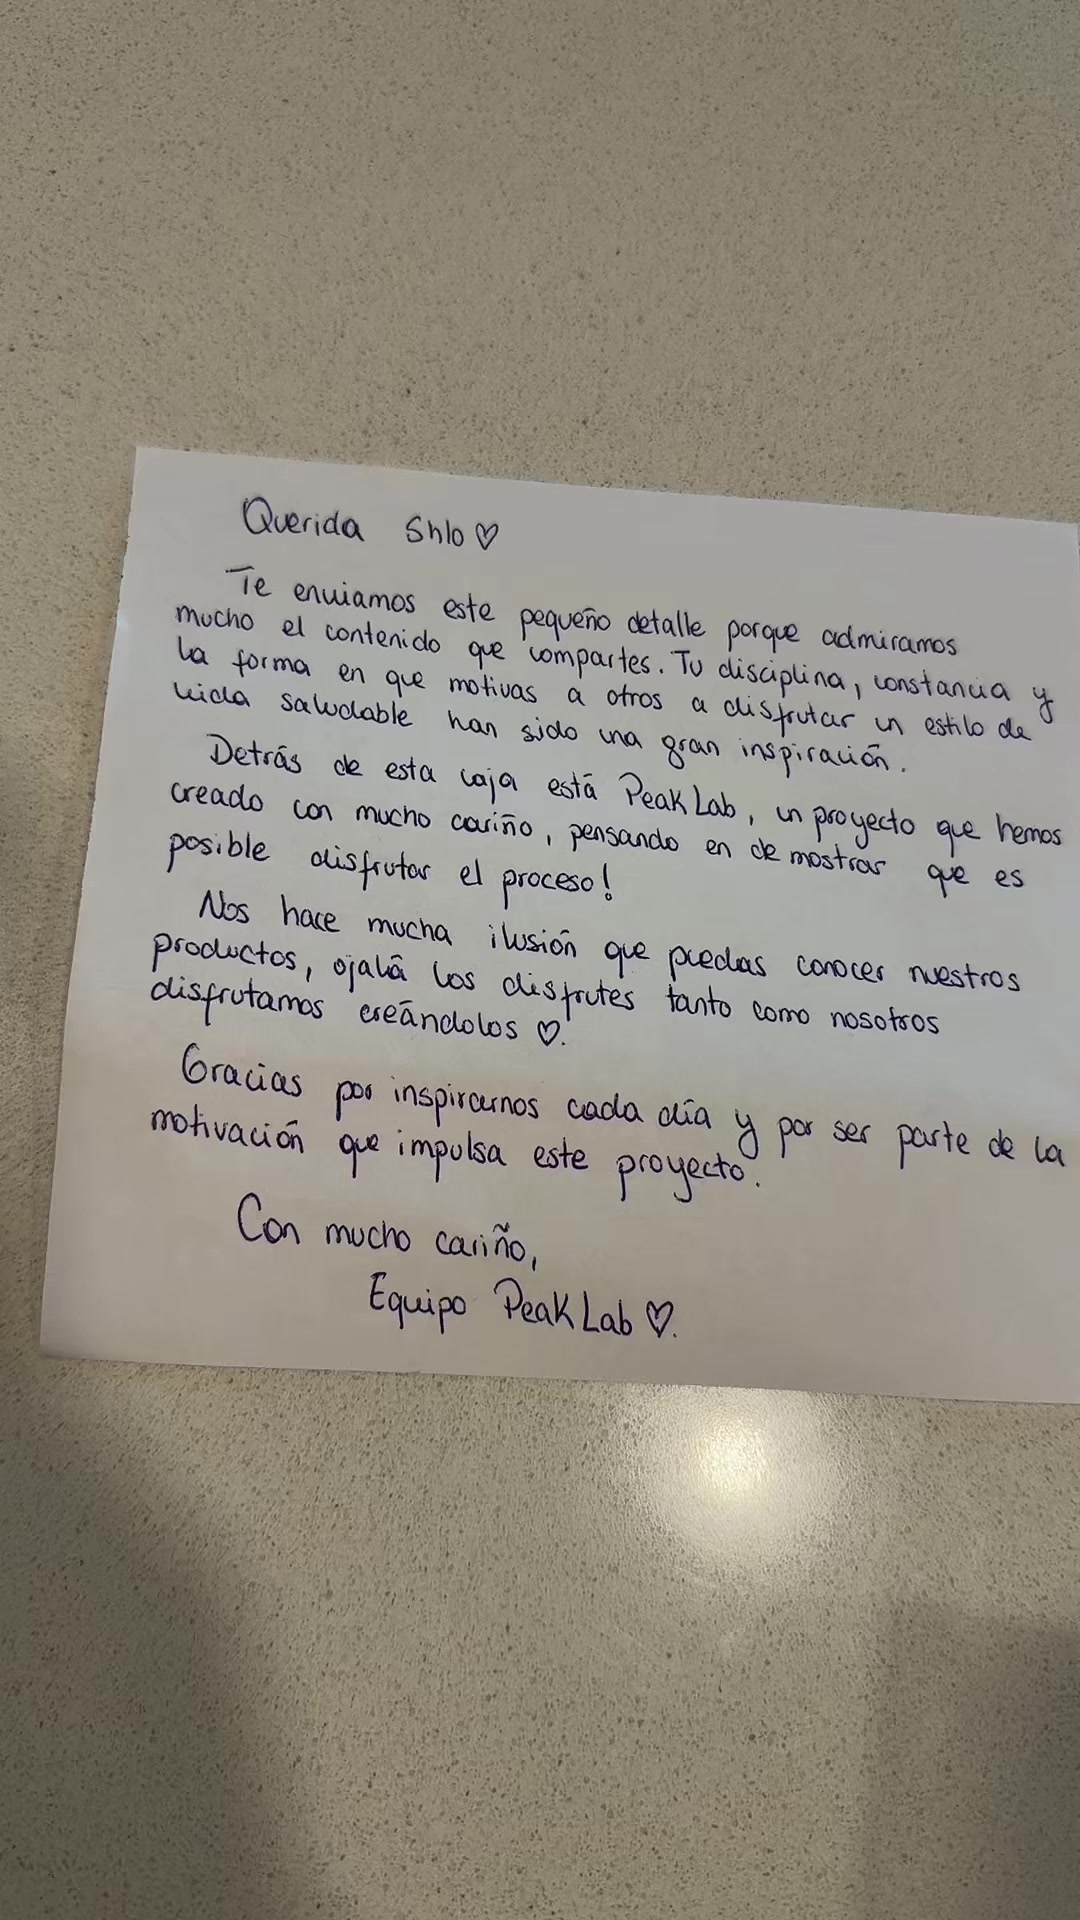 Querida Shlo ♡
Te enviamos este pequeño detalle porque admiramos
mucho el contenido que compartes. Tu disciplina, constancia y
la forma en que motivas a otros a disfrutar un estilo de
vida saludable han sido una gran inspiración.
Detrás de esta caja está PeakLab, un proyecto que hemos
creado con mucho cariño, pensando en demostrar que es
posible disfrutar el proceso!
Nos hace mucha ilusión que puedas conocer nuestros
productos, ojalá los disfrutes tanto como nosotros
disfrutamos creándolos ♡.
Gracias por inspirarnos cada día y por ser parte de la
motivación que impulsa este proyecto.
Con mucho cariño,
Equipo PeakLab ♡.